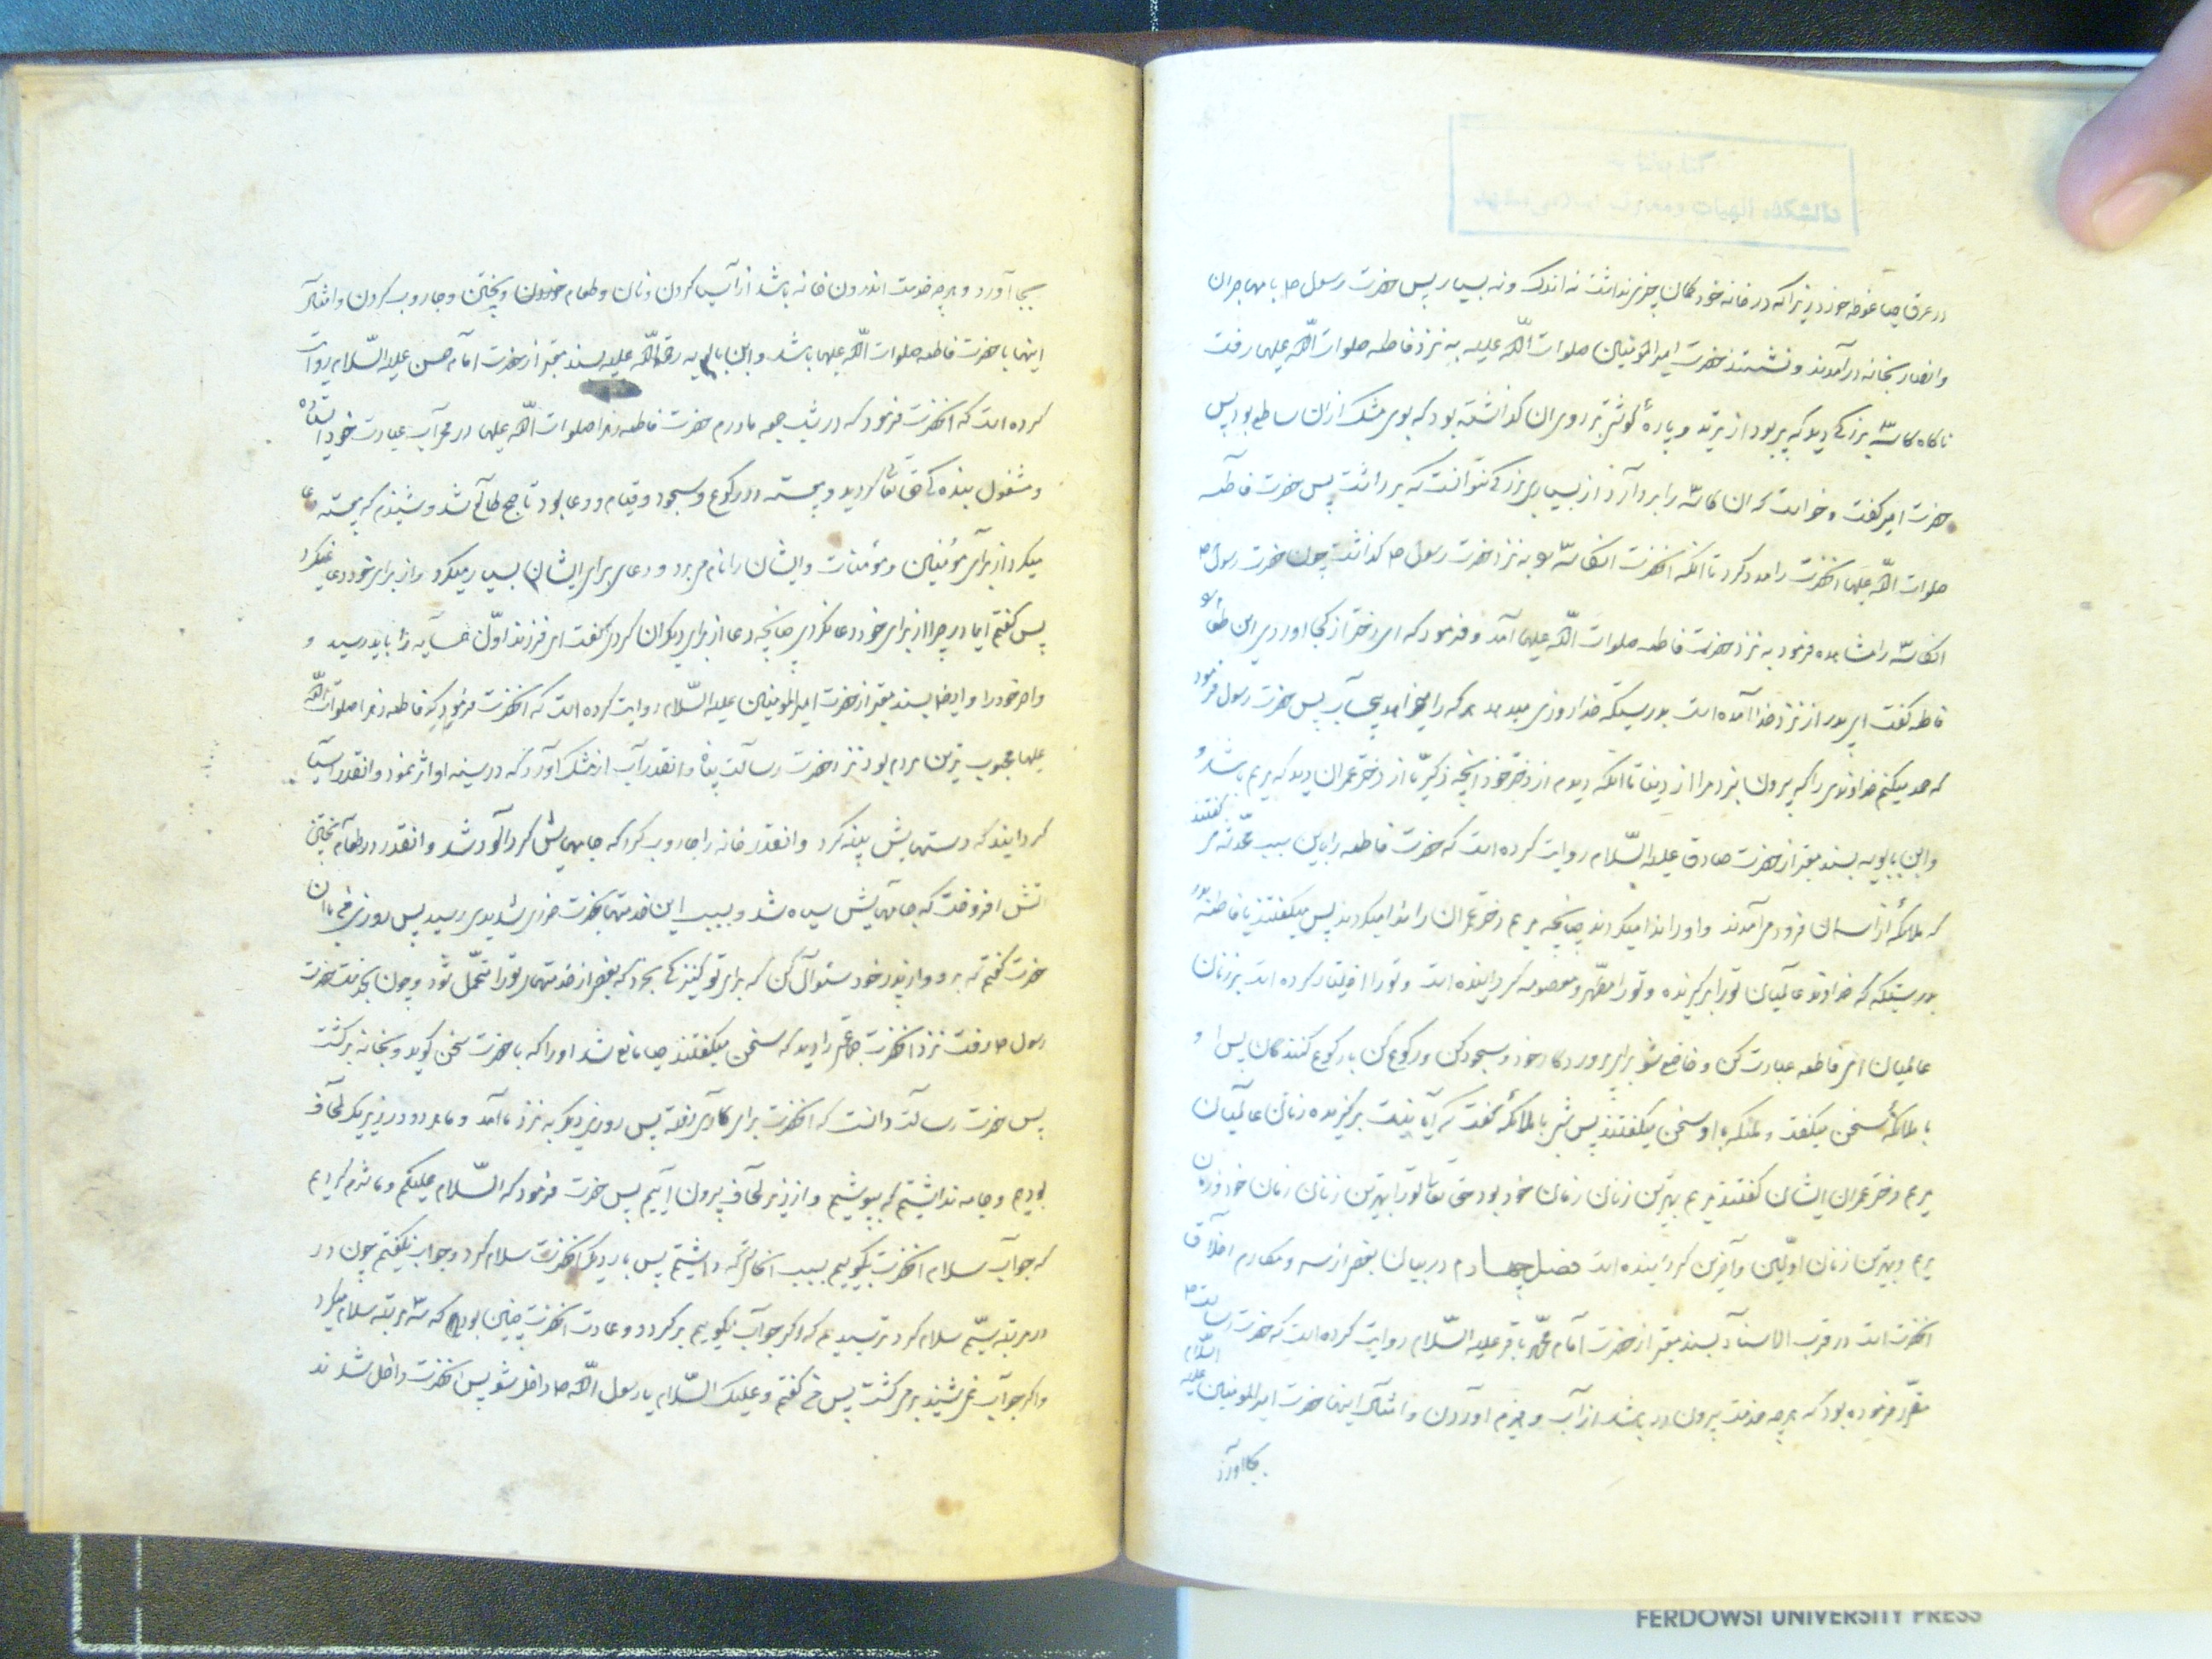 در عرق حیا غوطه خورد زیرا که در خانه خود کمان چیزی نداشت نه اندک و نه بسیار پس حضرت رسول ص با مهاجران
و انصار بخانه درآمدند و نشستند حضرت امیرالمؤمنین صلوات الله علیه به نزد فاطمه صلوات الله علیها رفت
ناکاه کاسهٔ بزرکی دید که پر بود از ترید و پارهٔ کوشت بر روی ان کذاشته بود که بوی مشک از ان ساطع بود پس
حضرت امیر کفت و خواست که ان کاسه را بردارد از بسیاری بزرکی نتوانست که بردارد پس حضرت فاطمه
صلوات الله علیها انحضرت را مدد کرد تا انکه انحضرت انکاسه را به نزد حضرت رسول ص کذاشت چون حضرت رسول ص
انکاسه را مشاهده فرمود به نزد حضرت فاطمه صلوات الله علیها آمد و فرمود که ای دختر از کجا اوردی این طعام را
فاطمه کفت ای پدر از نزد خدا آمده است بدرستیکه خدا روزی میدهد هر که را میخواهد بیحساب پس حضرت رسول فرمود
که حمد میکنم خداوندی را که بیرون نبرد مرا از دنیا تا انکه دیدم از دختر خود انچه زکریا از دختر عمران دید که مریم باشد و
و ابن بابویه بسند معتبر از حضرت صادق علیه السّلام روایت کرده است که حضرت فاطمه را باین سبب محدّثه می کفتند
که ملائکه از اسمان فرود می آمدند و او را ندا میکردند چنانچه مریم دختر عمران را ندا میکردند پس میکفتند یا فاطمه
بدرستیکه که خداوند عالمیان تو را برکزیده و تو را مطهّر و معصومه کردانیده است و تو را اختیار کرده است بر زنان
عالمیان ای فاطمه عبادت کن و خاضع شو برای پروردکار خود و سجود کن و رکوع کن با رکوع کنندکان پس او
با ملائکه سخن میکفت و ملئکه با او سخن میکفتند پس شبی با ملائکه کفت که آیا نیست برکزیده زنان عالمیان
مریم دختر عمران ایشان کفتند مریم بهترین زنان زمان خود بود حق تعالی تو را بهترین زنان زمان خود و زمان
مریم و بهترین زنان اوّلین و آخرین کردانیده است فصل چهارم در بیان بعضی از سیر و مکارم اخلاق
انحضرت است در قرب الاسناد بسند معتبر از حضرت امام محمّد باقر علیه السّلام روایت کرده است که حضرت رسالت ص
مقرّر فرموده بود که هرچه خدمت بیرون در باشد از آب و هیزم آوردن و امثال اینها حضرت امیرالمؤمنین علیه السّلام
بجا آورد
بجا آورد و هرچه خدمت اندرون خانه باشد از آسیا کردن و نان و طعام خوردن و پختن و جاروب کردن و امثال
اینها با حضرت فاطمه صلوات الله علیها باشد و ابن بابویه رحمة الله علیه بسند معتبر از حضرت امام حسن علیه السّلام روایت
کرده است که انحضرت فرمود که در شب جمعه مادرم حضرت فاطمه زهرا صلوات الله علیها در محراب عبادت خود ایستاده
و مشغول بنده کی حق تعالی کردید و پیوسته در رکوع و سجود و قیام و دعا بود تا صبح طالع شد و شنیدم که پیوسته دعا
میکرد از برای مؤمنین و مؤمنات و ایشان را نام می برد و دعای برای ایشان بسیار میکرد و از برای خود دعا نمیکرد
پس کفتم ای مادر چرا از برای خود دعا نکردی چنانچه دعا از برای دیکران کردی کفت ای فرزند اوّل همسایه را باید رسید و
و اخر خود را و ایضا بسند معتبر از حضرت امیرالمؤمنین علیه السّلام روایت کرده است که انحضرت فرمود که فاطمه زهرا صلوات الله
علیها محبوب ترین مردم بود نزد حضرت رسالت پناه و انقدر آب از مشک آورد که در سینه او اثر نمود و انقدر آسیا
کردانید که دستهایش پینه کرد و انقدر خانه را جاروب کرد که جامهایش کردآلود شد و انقدر در طعام پختن
اتش افروخت که جامهایش سیاه شد و بسبب این خدمتها بحضرت ضرری شدیدی رسید پس روزی من با ان
حضرت کفتم که برو و از پدر خود سئوال کن که برای تو کنیزکی بخرد که بعضی از خدمتهای تو را متحمّل شود و چون بخدمت حضرت
رسول ص رفت نزد انحضرت جمعی را دید که سخن میکفتند حیا مانع شد او را که با حضرت سخن کوید و بخانه برکشت
پس حضرت رسالت دانست که انحضرت برای کاری رفته پس روز دیکر به نزد ما آمد و ما هر دو در زیر یک لحاف
بودیم و جامه نداشتیم که بپوشیم و از زیر لحاف بیرون اییم پس حضرت فرمود که السّلام علیکم و ما شرم کردیم
که جواب سلام انحضرت بکوییم بسبب انحالتی که داشتیم پس بار دیکر انحضرت سلام کرد و جواب نکفتیم چون در
در مرتبه سیّم سلام کرد ترسیدیم که اکر جواب نکوییم برکردد و عادت انحضرت چنین بود که سه مرتبه سلام میکرد
و اکر جواب نمی شنید برمی کشت پس من کفتم و علیک السّلام یا رسول الله ص داخل شو پس انحضرت داخل شدند
FERDOWSI UNIVERSITY PRESS